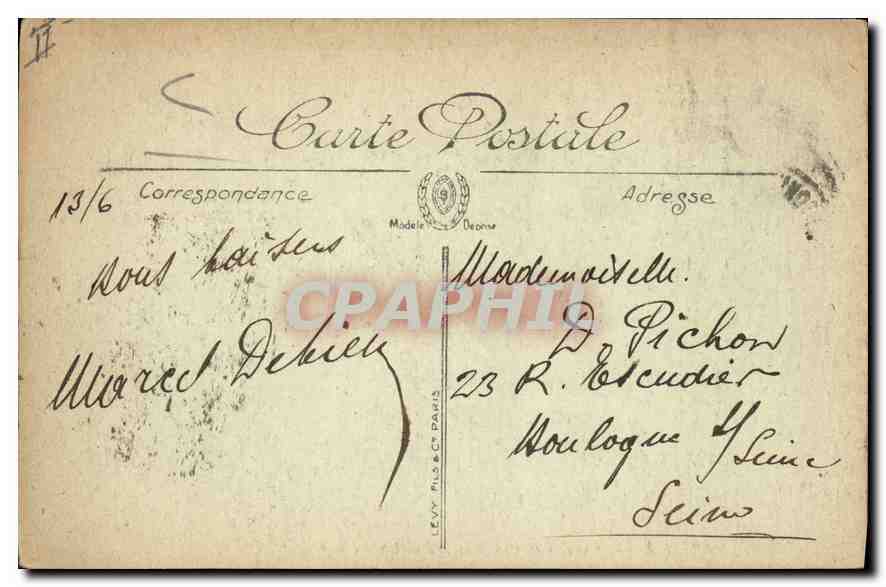 II
Carte Postale
Correspondance
Adresse
Modèle Deposé
13/6
Bons baisers
Marcel
Mademoiselle.
D. Pichon
23 R. Escudier
Boulogne s/ Seine
Seine
LEVY FILS & Cie PARIS
CPAPHIL